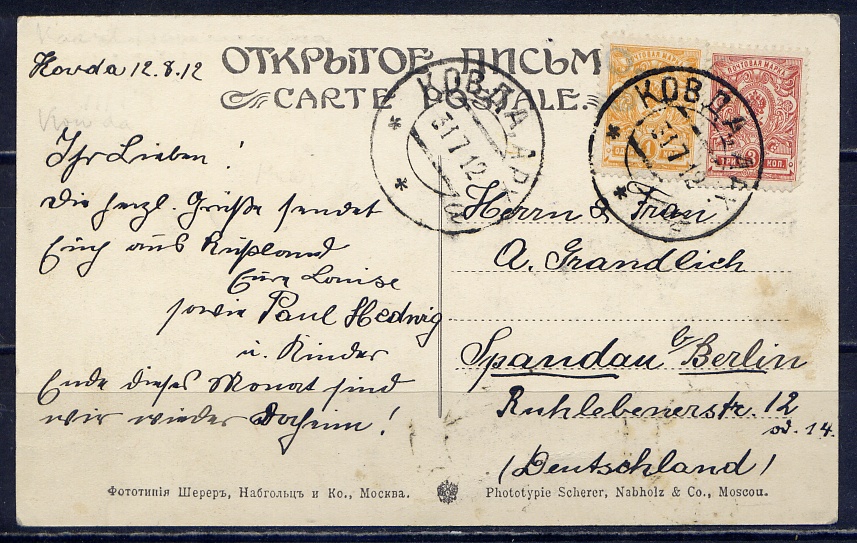 ОТКРЫТОЕ ПИСЬМО
CARTE POSTALE.
Kovda 12.8.12
Ihr Lieben!
Die herzl. Grüße sendet
Euch aus Rußland
Eure Louise
sowie Paul Hedwig
u. Kinder
Ende dieses Monat sind
wir wieder daheim!
КОВДА, АРХ
31 7 12
ПОЧТОВАЯ МАРКА
1
ПОЧТОВАЯ МАРКА
ТРИ КОП.
КОВДА
31 7 12
Herrn & Frau
A. Grandlich
Spandau b/ Berlin
Ruhlebenerstr. 12
od. 14.
(Deutschland)
Фототипія Шереръ, Набгольцъ и Ко., Москва.
Phototypie Scherer, Nabholz & Co., Moscou.